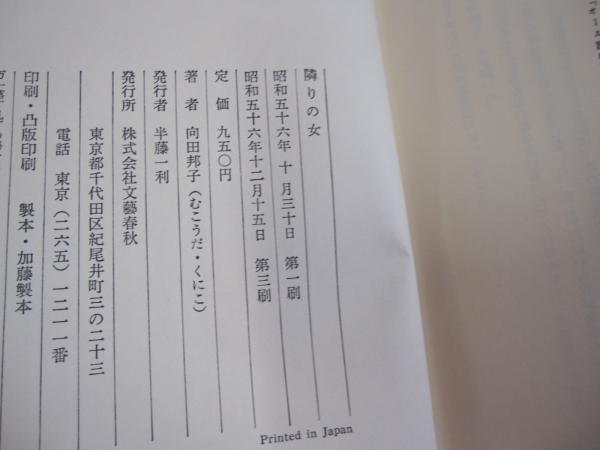 隣りの女
昭和五十六年 十 月三十日 第一刷
昭和五十六年十二月十五日 第三刷
定 価 九五〇円
著 者 向田邦子(むこうだ・くにこ)
発行者 半藤一利
発行所 株式会社文藝春秋
東京都千代田区紀尾井町三の二十三
電話 東京(二六五)一二一一番
印刷・凸版印刷 製本・加藤製本
Printed in Japan